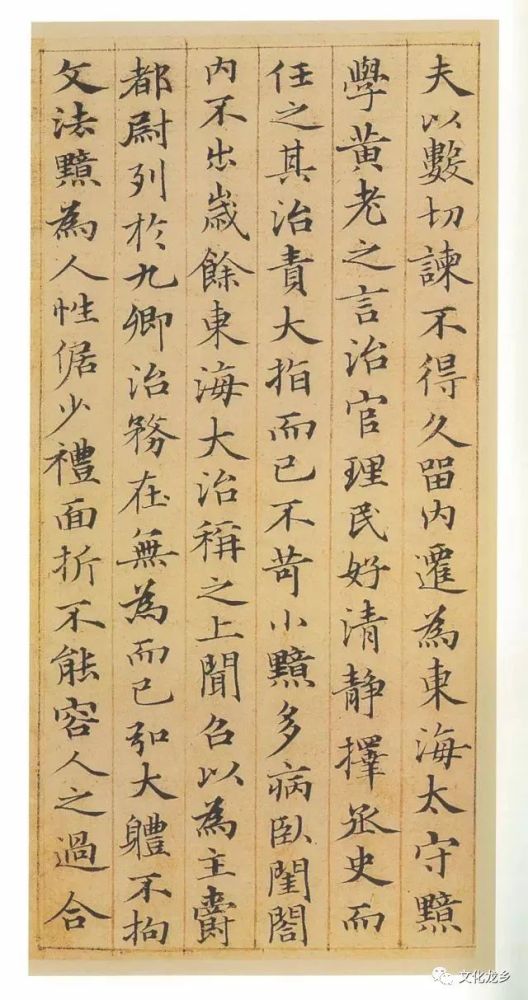 夫以數切諫不得久留内遷為東海太守黯
學黄老之言治官理民好清静擇丞史而
任之其治責大指而已不苛小黯多病臥閨閤
内不出歲餘東海大治稱之上聞召以為主爵
都尉列於九卿治務在無為而已弘大體不拘
文法黯為人性倨少禮面折不能容人之過合
文化龙乡